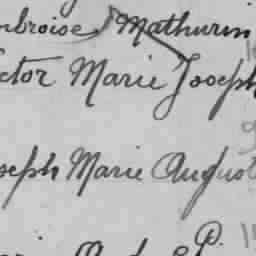 mbroise Mathurin
ctor Marie Joseph
oseph Marie August